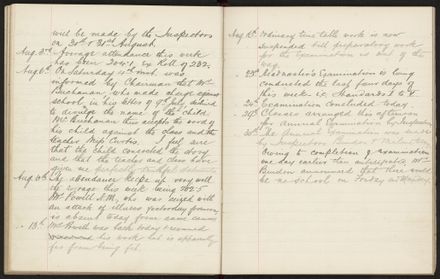 will be made by the Inspectors
on 30th & 31st August.
Aug. 3rd Average attendance this week
has been 204.1, ex Roll of 232.
Aug 6th On Saturday 4th inst. was
informed by Chairman that Mr
Buchanan, who made charge against
school, in his letter of 9th July, declined
to divulge the name of the child.
Mr Buchanan thus accepts the word of
his child against the class and the
teacher Miss Curtis. I feel sure
that the child concocted the story
and that the teacher and class have
given me
Aug. 10th The attendance keeps up very well
the average this week being 202.5
Mr Powell A.M., who was seized with
an attack of illness yesterday
is absent today from same cause
" 13th Mr Powell was back today & resumed
his work but is apparently
far from being fit.
Aug 15th Ordinary time table work is now
suspended till preparatory work
for the Examination is out of the
way.
" 23rd Headmaster's Examination is being
conducted the last four days of
this week i.e. Standards I to V
" 24th Examination concluded today.
" 29th Classes arranged this afternoon
for Annual Examination by Inspectors
" 30th The Annual Examination was made
by Inspectors
Owing to completion of examination
one day earlier than anticipated, Mr
announced that there would
be no school on Friday